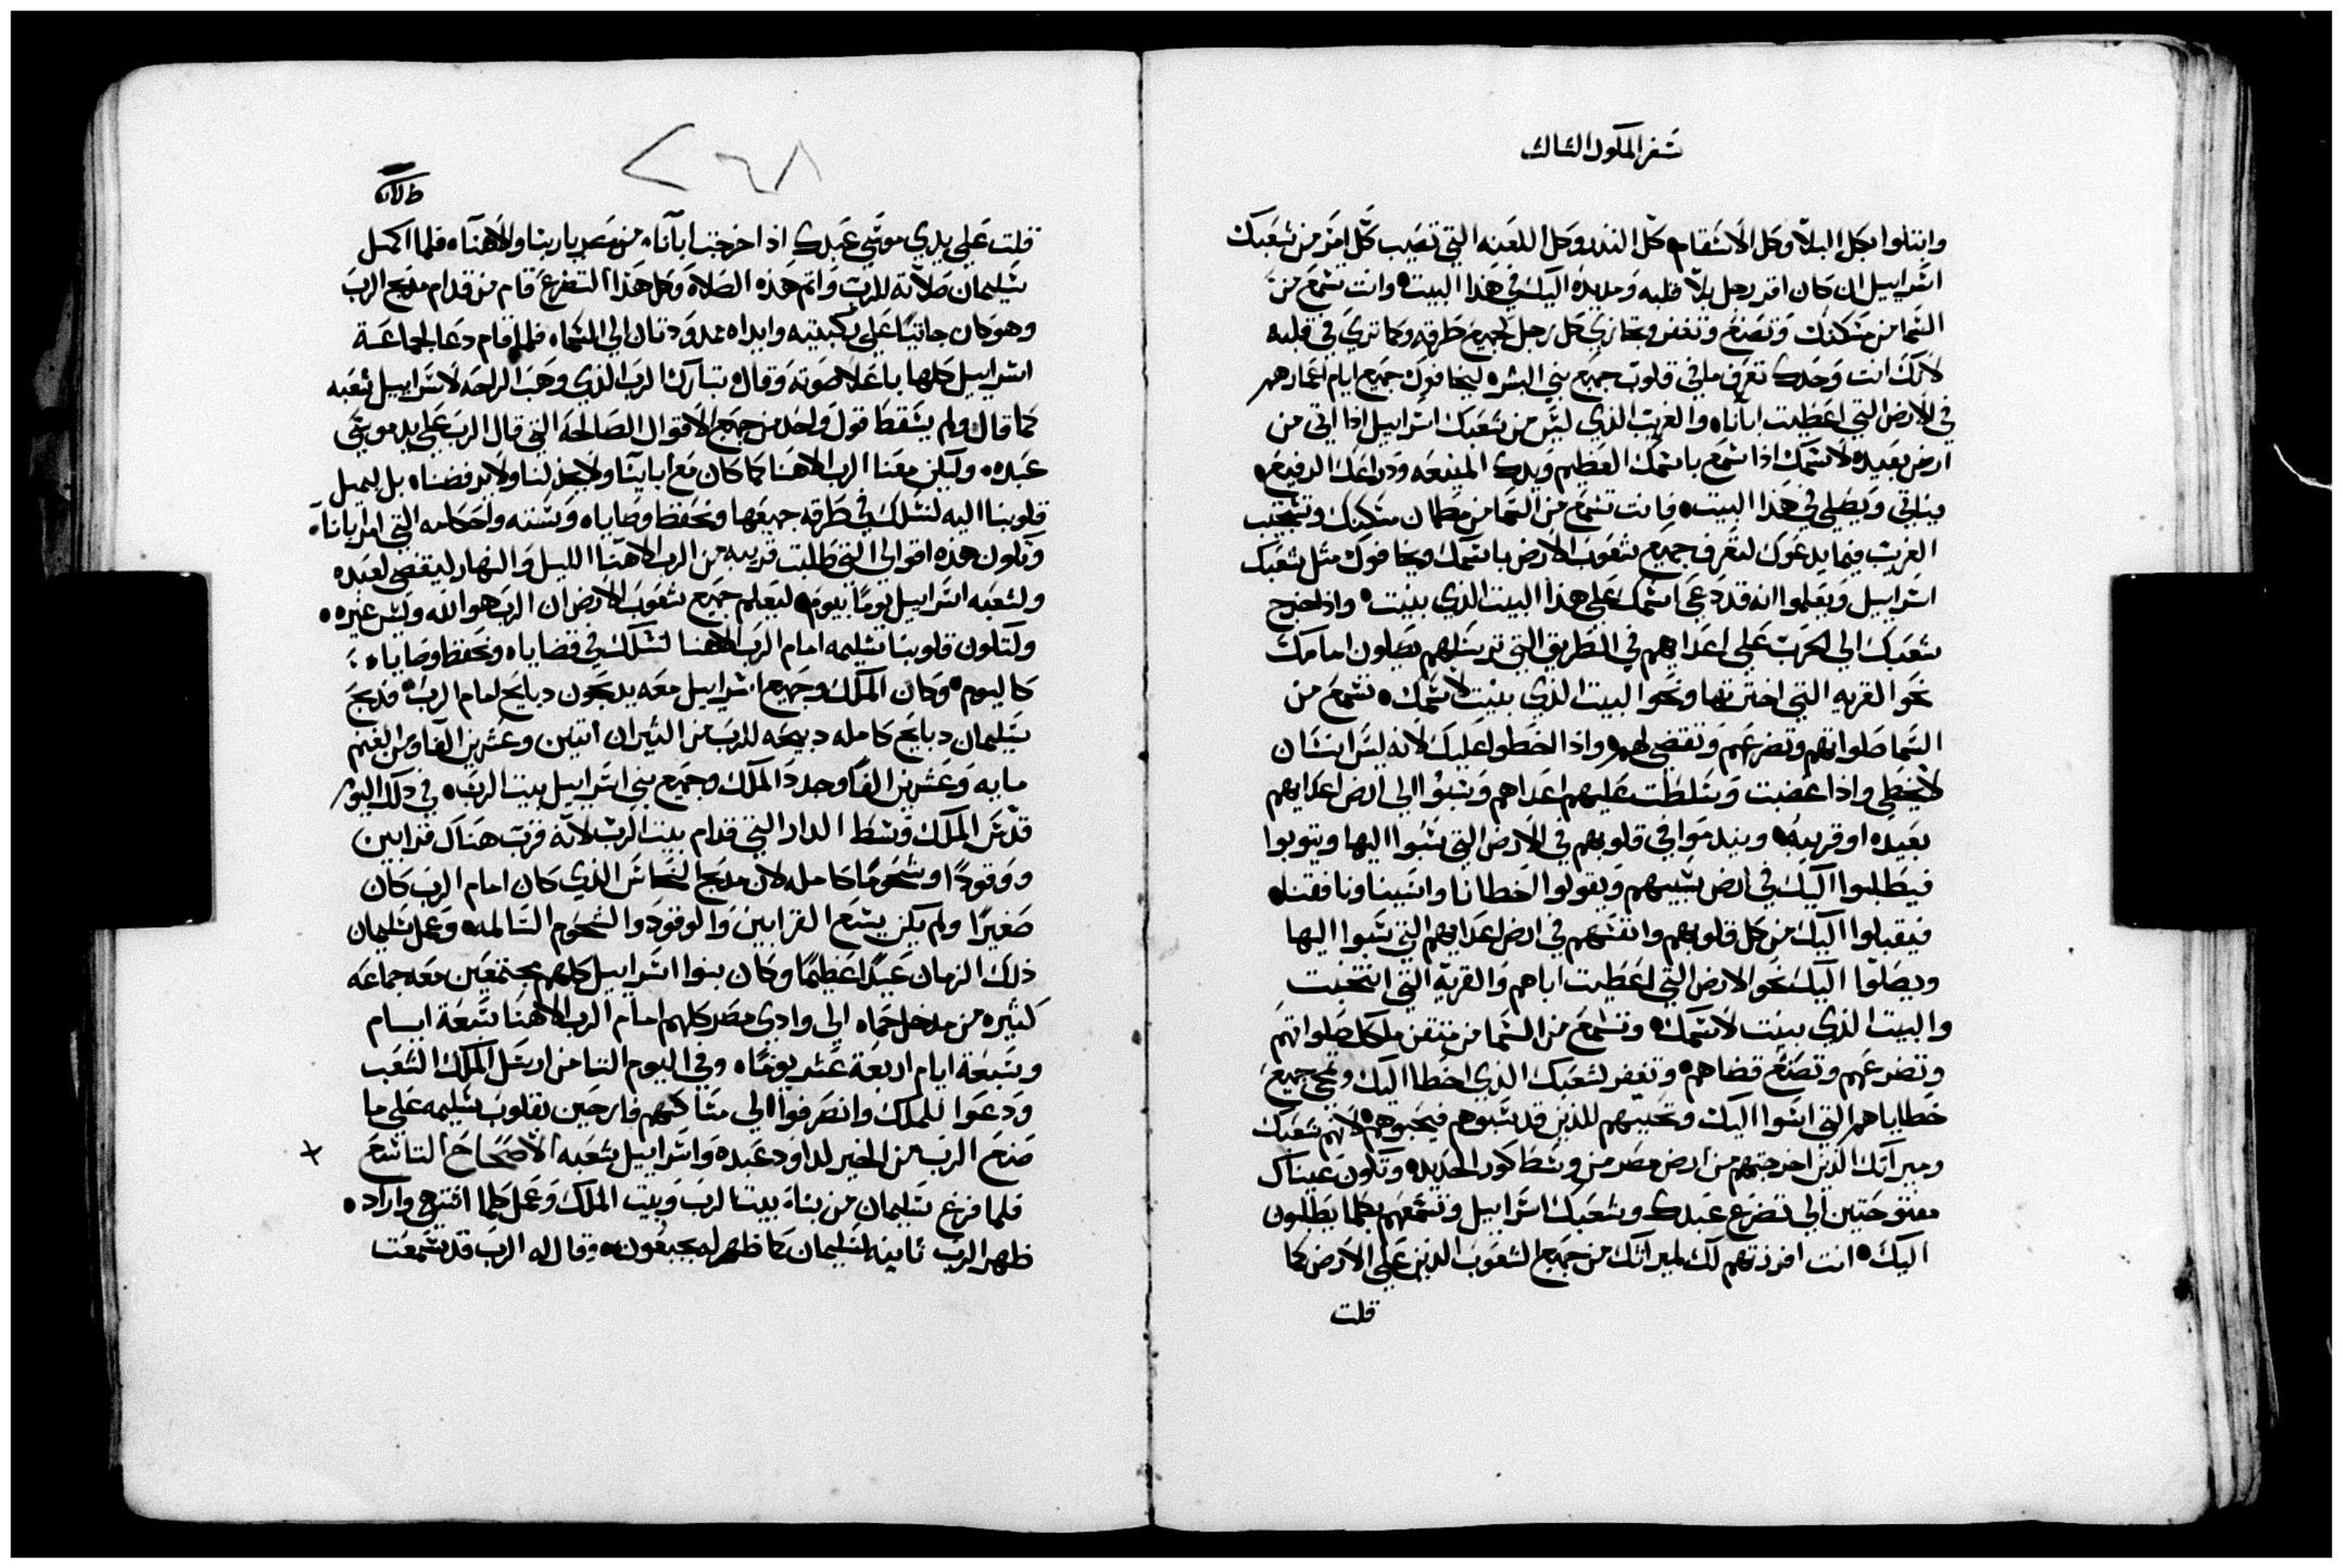 سفر الملوك الثالث
وابتلوا بكل البلا وكل الاسقام وكل الندر وكل اللعنه التي تصيب كل امر من شعبك
اسراييل ان كان اقر رجل بلا قلبه ومد يده اليك في هذا البيت وانت تسمع من
السما من مسكنك وتصنع وتغفر وتجازي كل رجل لجميع طرقه وكما تري في قلبه
لانك انت وحدك تعرف ما في قلوب جميع بني البشره ليخافوك جميع ايام اعمارهم
في الارض التي اعطيت ابآناه والغريب الذي ليس من شعبك اسراييل اذا اتى من
ارض بعيده لاسمك اذا سمع باسمك العظيم ويدك المنيعه ودراعك الرفيع
فياتي ويصلي في هذا البيت فانت تسمع من السما من مطمان مسكنك وتستجب
الغريب فيما يدعوك لتعرف جميع شعوب الارض باسمك ويخافوك مثل شعبك
اسراييل ويعلموا انه قد دعي اسمك على هذا البيت الذي بنيت واذا خرج
شعبك الى الحرب على اعدايهم في الطريق التي ترسلهم يصلون امامك
نحو القريه التي اخترتها ونحو البيت الذي بنيت لاسمك تسمع من
السما صلواتهم وتضرعهم وتقضي لهم واذا اخطوا عليك لانه ليس انسان
لا يخطي واذا غضبت وتسلطت عليهم اعداهم وسبوا الي ارض اعدايهم
بعيده او قريبه ويندموا في قلوبهم في الارض التي سبوا اليها ويتوبوا
فيطلبوا اليك في ارض سبيهم ويقولوا اخطانا واسينا ونافقنا
فيقبلوا اليك من كل قلوبهم وانفسهم في ارض اعدايهم التي سبوا اليها
ويصلوا اليك نحو الارض التي اعطيت اباهم والقرية التي انتخبت
والبيت الذي بنيت لاسمك وتسمع من السما من متقن ملكك صلواتهم
وتضرعهم وتصنع قضاهم وتغفر لشعبك الذي اخطا اليك وتمحي جميع
خطاياهم التي اسوا اليك وتحببهم للذين قد سبوهم فيحبوهم لانهم شعبك
وميراثك الذين اخرجتهم من ارض مصر من وسط كور الحديد وتكون عيناك
مفتوحتين الى تضرع عبدك وشعبك اسراييل وتسمعهم بكلما يطلبون
اليك انت افرزتهم لك لميراثك من جميع الشعوب الذين على الارض كما
قلت
٢٦٨
قلت على يدي موسي عبدك اذ اخرجت ابآناه من مصر يا ربنا والاهناه فلما اكمل
سليمان صلاته للرب واتم هذه الصلاة وكل هذا التضرع قام من قدام مدبح الرب
وهو كان جاثيا على ركبتيه وايداه ممدودتان الي السماه فلما قام دعا لجماعة
اسراييل كلها باعلا صوته وقال تبارك الرب الذي وهب الراحه لاسراييل شعبه
كما قال ولم يسقط قول واحد من جميع الاقوال الصالحه التي قال الرب على يد موسي
عبده وليكن معنا الرب الاهنا كما كان مع ابآينا ولا يخزلنا ولا يرفضناه بل يميل
قلوبنا اليه لنسلك في طرقه جميعها ونحفظ وصاياه وسننه واحكامه التي امر بها ابآناه
وتكون هذه اقوالي التي طلبت قريبه من الرب الاهنا الليل والنهار ليقضي لعبده
ولشعبه اسراييل يوما بيوم ليعلم جميع شعوب الارض ان الرب هو الله وليس غيره
ولتكون قلوبنا سليمه امام الرب الاهنا لنسلك في قضاياه ونحفظ وصاياه
كاليوم وكان الملك وجميع اسراييل معه يدبحون دبايح امام الرب فدبح
سليمان دبايح كامله دبيحه للرب من الثيران اتنين وعشرين الفا ومن الغنم
مايه وعشرين الفا وجدد الملك وجميع بني اسراييل بيت الرب في ذلك اليوم
قدس الملك وسط الدار التي قدام بيت الرب لانه قرب هناك قرابين
ووقودا وشحوما كامله لان مدبح النحاس الذي كان امام الرب كان
صغيرا ولم يكن يسع القرابين والوقود والشحوم السالمه وعمل سليمان
ذلك الزمان عيدا عظيما وكان بنوا اسراييل كلهم مجتمعين معه جماعه
كثيره من مدخل حماه الي وادي مصر كلهم امام الرب الاهنا سبعة ايام
وسبعة ايام اربعة عشر يوما وفي اليوم الثامن ارسل الملك الشعب
ودعوا للملك وانصرفوا الي مساكنهم فارحين بقلوب سليمه على ما
صنع الرب من الخير لداود عبده واسراييل شعبه الاصحاح التاسع
فلما فرغ سليمان من بناء بيت الرب وبيت الملك وعمل كلما اشتهى واراده
ظهر الرب ثانيه لسليمان كما ظهر له بجبعون وقال له الرب قد سمعت